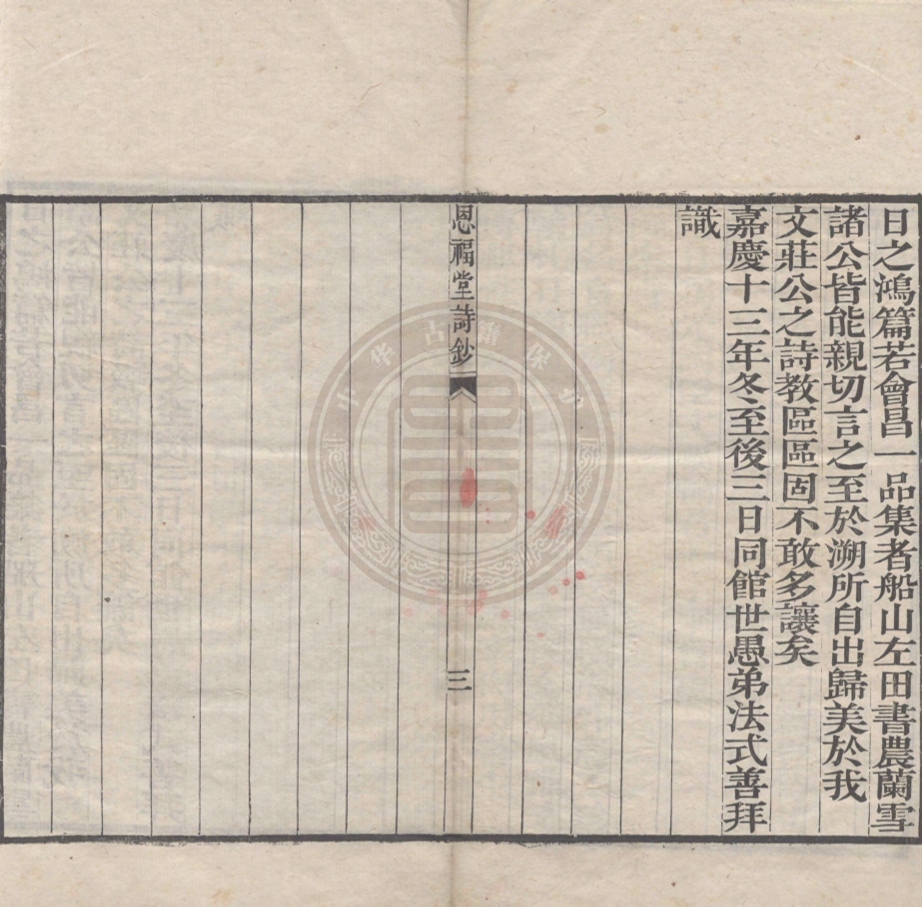 日之鴻篇若會昌一品集者船山左田書農蘭雪
諸公皆能親切言之至於溯所自出歸美於我
文莊公之詩教區區固不敢多讓矣
嘉慶十三年冬至後三日同館世愚弟法式善拜
識
恩福堂詩鈔
三
中华古籍保护